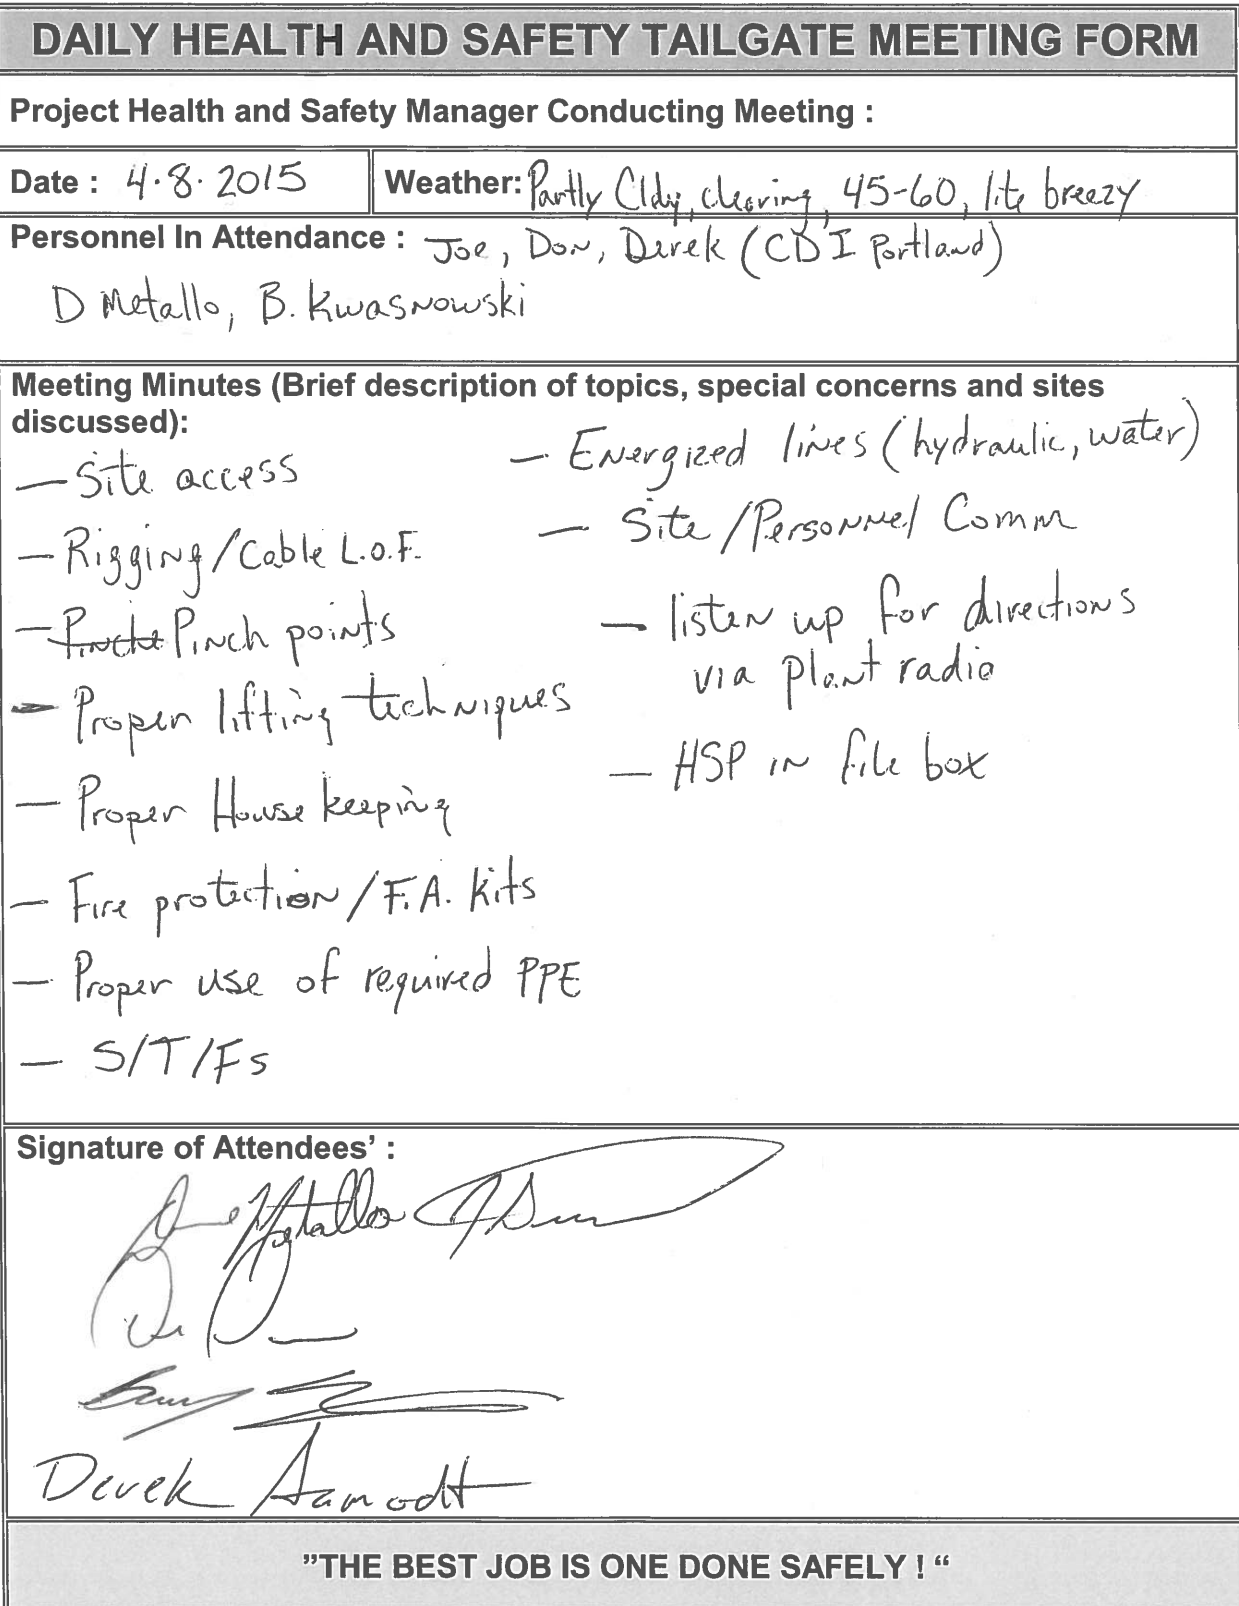 DAILY HEALTH AND SAFETY TAILGATE MEETING FORM
Project Health and Safety Manager Conducting Meeting :
Date : 4.8.2015
Weather: Partly Cldy, clearing, 45-60, lite breezy
Personnel In Attendance : Joe, Don, Derek (CDI Portland)
D Metallo, B. Kwasnowski
Meeting Minutes (Brief description of topics, special concerns and sites
discussed):
— Site access
— Rigging/Cable L.O.F.
— Pinch points
— Proper lifting techniques
— Proper House keeping
— Fire protection/F.A. kits
— Proper use of required PPE
— S/T/Fs
— Energized lines (hydraulic, water)
— Site/Personnel Comm
— listen up for directions
via plant radio
— HSP in file box
Signature of Attendees' :
Metallo
Derek Aamodt
"THE BEST JOB IS ONE DONE SAFELY ! "